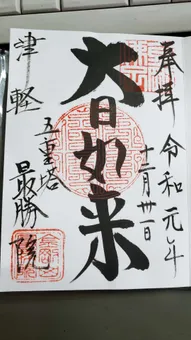 奉拝
令和元年
十二月卅一日
大日如来
津軽
五重塔
最勝院